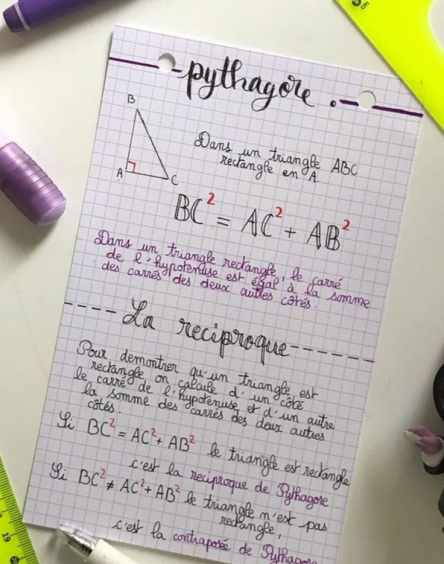 pythagore.
B
A
C
Dans un triangle ABC
rectangle en A.
BC² = AC² + AB²
Dans un triangle rectangle, le carré
de l'hypoténuse est égal à la somme
des carrés des deux autres côtés.
La reciproque
Pour demontrer qu'un triangle est
rectangle on calcule d'un côté
le carré de l'hypoténuse et d'un autre
la somme des carrés des deux autres
côtés.
Si BC² = AC² + AB² le triangle est rectangle
c'est la reciproque de Pythagore
Si BC² ≠ AC² + AB² le triangle n'est pas
rectangle,
c'est la contraposée de Pythagore